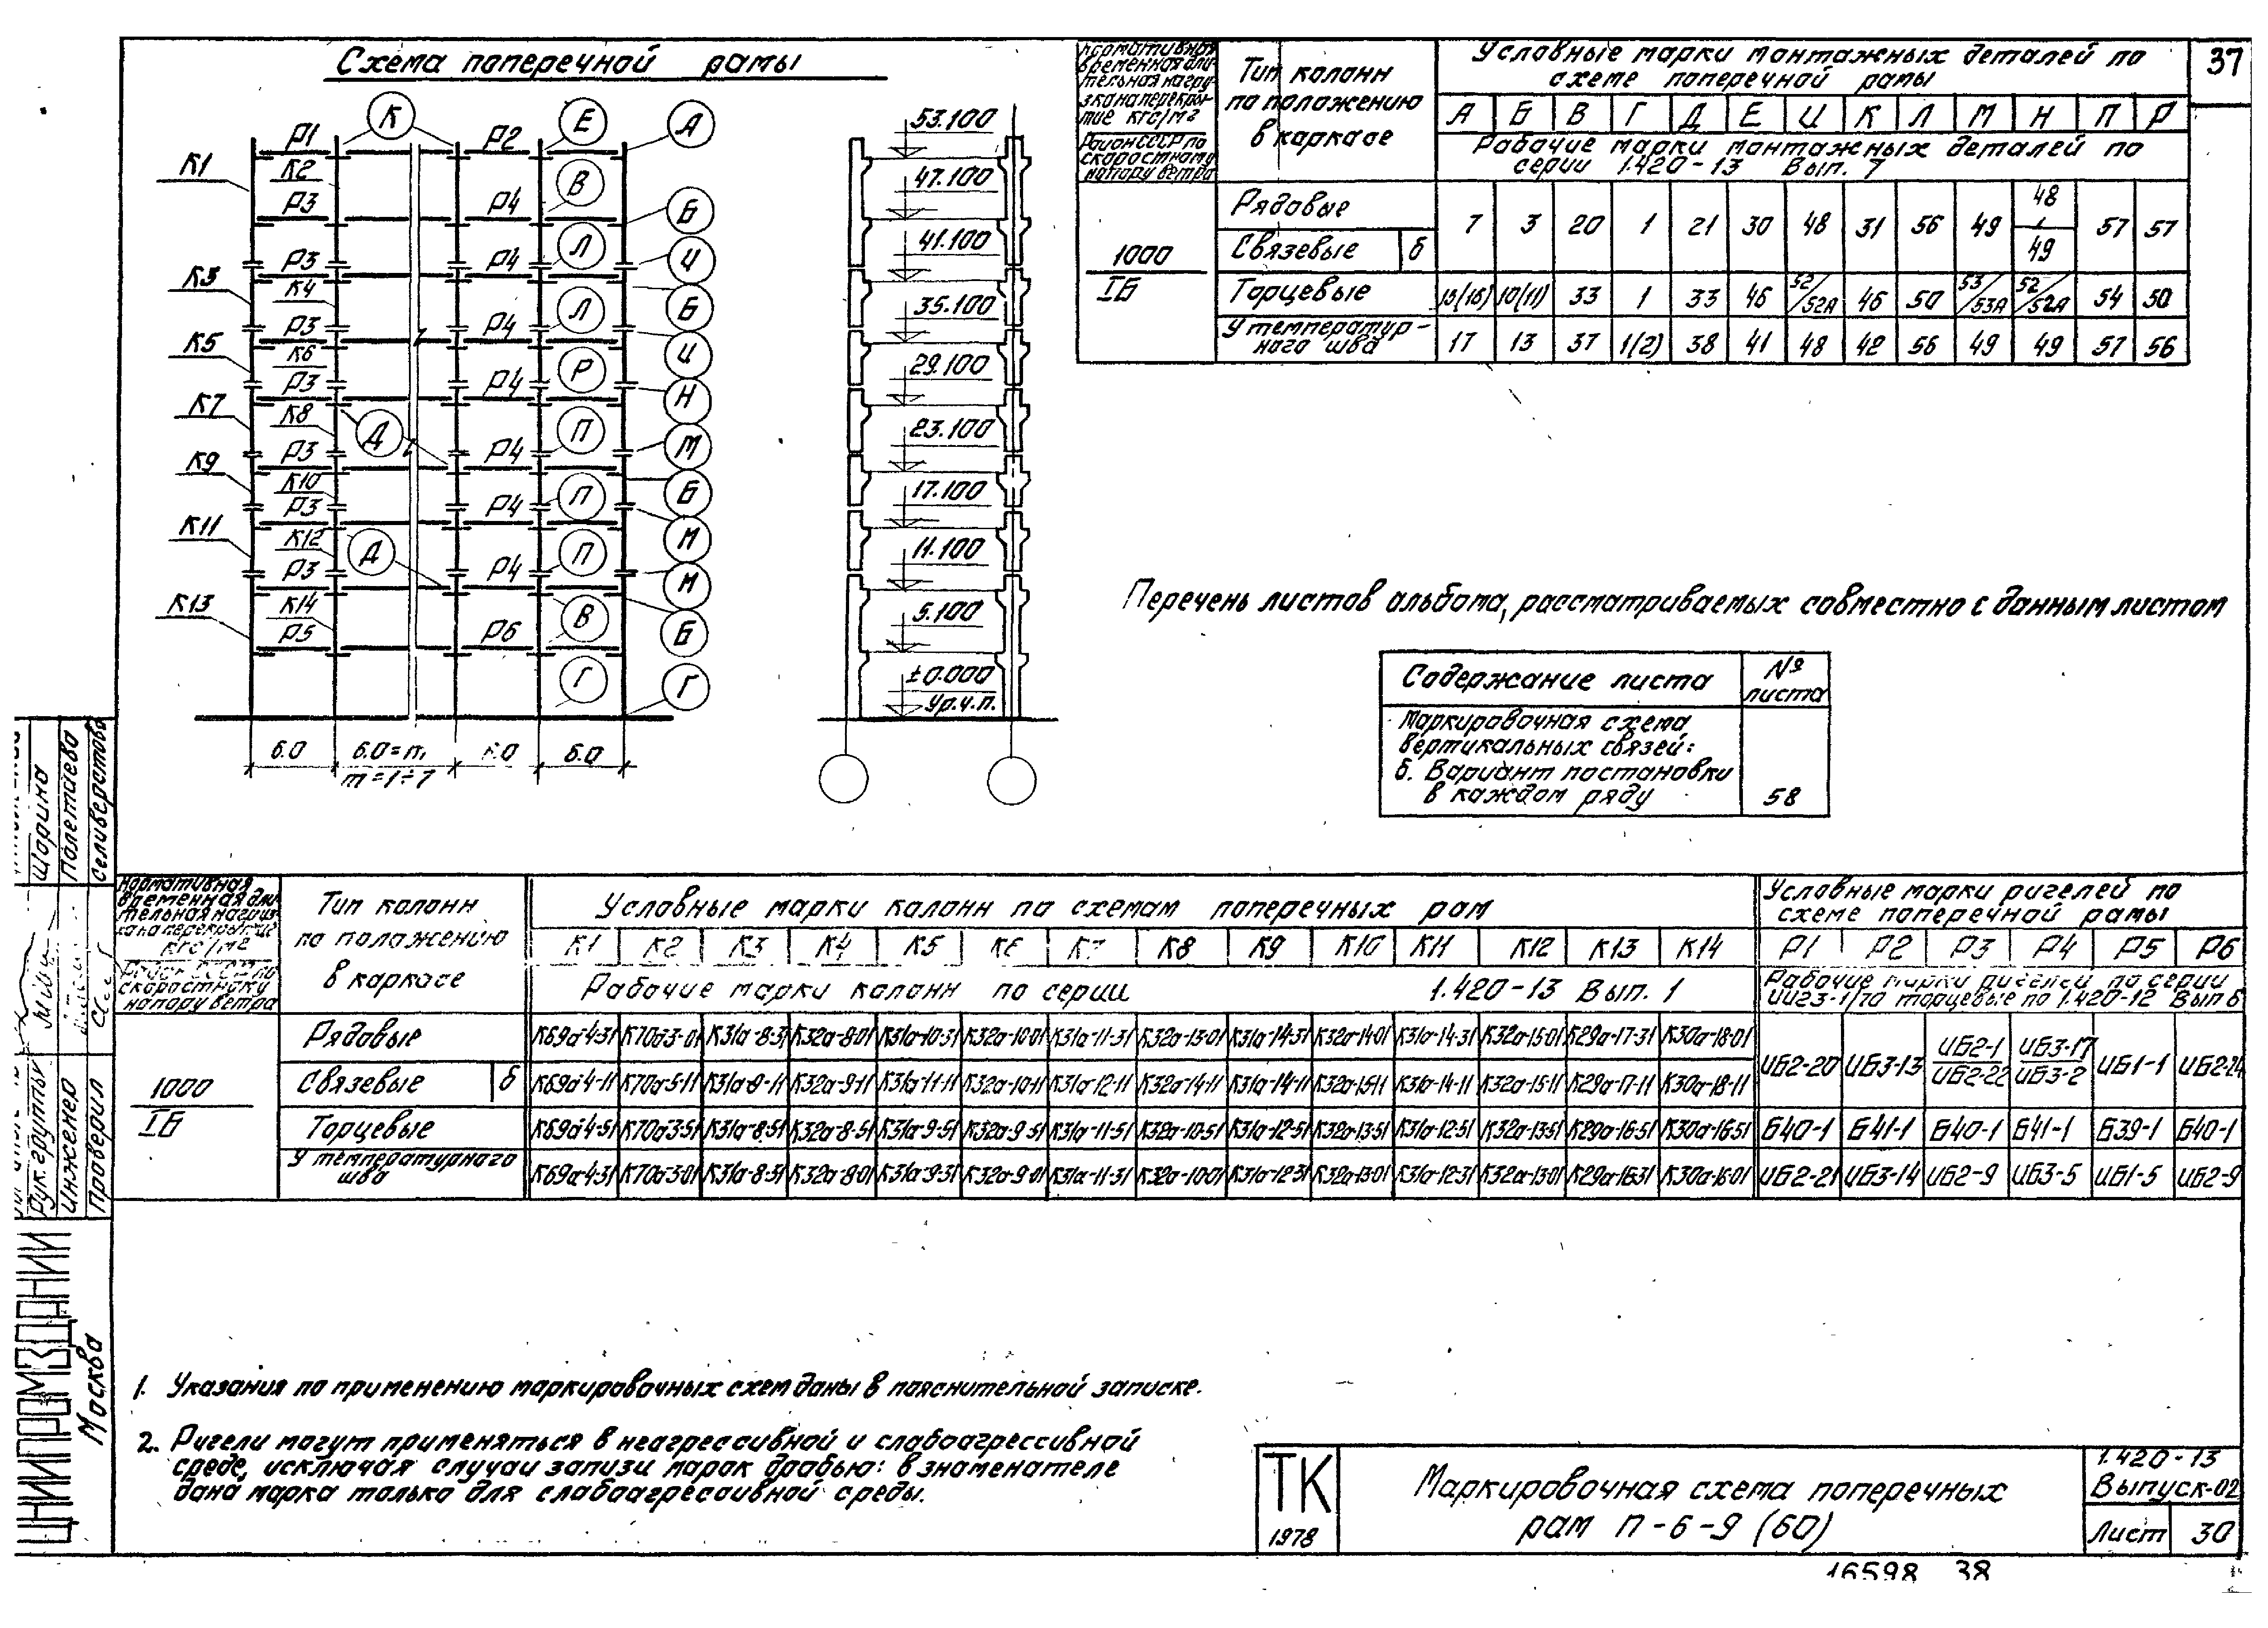 37
Схема поперечной рамы
К
Е
А
Р1
Р2
К1
К2
В
Р3
Р4
Б
Л
И
Р3
Р4
К3
К4
Л
Б
Р3
Р4
К5
К6
Р
И
Р3
Р4
Н
К7
К8
Д
П
М
Р3
Р4
К9
К10
П
Б
Р3
Р4
К11
К12
Д
П
М
Р3
Р4
М
К13
К14
В
Б
Р5
Р6
Г
Г
6.0
6.0
m=1÷7
53.100
47.100
41.100
35.100
29.100
23.100
17.100
11.100
5.100
±0.000
Ур.ч.п.
Нормативная
временная дли-
тельная нагру-
зка на перекры-
тие кгс/м2
Район СССР по
скоростному
напору ветра
Тип колонн
по положению
в каркасе
Условные марки монтажных деталей по
схеме поперечной рамы
А Б В Г Д Е И К Л М Н П Р
Рабочие марки монтажных деталей по
серии 1.420-13 Вып. 7
1000
IБ
Рядовые
Связевые б
7 3 20 1 21 30 48 31 56 49 48/49 57 57
Торцевые 10(11) 33 1 33 46 52/52А 46 50 53/53А 52/52А 54 50
У температур-
ного шва 17 13 37 1(2) 38 41 48 42 56 49 49 57 56
Перечень листов альбома, рассматриваемых совместно с данным листом
Содержание листа
№
листа
Маркировочная схема
вертикальных связей:
б. Вариант постановки
в каждом ряду 58
Нормативная
временная дли-
тельная нагруз-
ка на перекрытие
кгс/м2
Район СССР по
скоростному
напору ветра
Тип колонн
по положению
в каркасе
Условные марки колонн по схемам поперечных рам
К1 К2 К3 К4 К5 К6 К7 К8 К9 К10 К11 К12 К13 К14
Рабочие марки колонн по серии 1.420-13 Вып. 1
Условные марки ригелей по
схеме поперечной рамы
Р1 Р2 Р3 Р4 Р5 Р6
Рабочие марки ригелей по серии
ИИ23-1/70 торцевые по 1.420-12 Вып 6
1000
IБ
Рядовые К69а-4-31 К70а-3-01 К31а-8-31 К32а-8-01 К31а-10-31 К32а-10-01 К31а-11-31 К32а-13-01 К31а-14-31 К32а-14-01 К31а-14-31 К32а-15-01 К29а-17-31 К30а-18-01
Связевые б К69а-4-11 К70а-5-11 К31а-9-11 К32а-9-11 К31а-11-11 К32а-10-11 К31а-12-11 К32а-14-11 К31а-14-11 К32а-15-11 К31а-14-11 К32а-15-11 К29а-17-11 К30а-18-11
ИБ2-20 ИБ3-13 ИБ2-1/ИБ2-22 ИБ3-17/ИБ3-2 ИБ1-1 ИБ2-24
Торцевые К69а-4-51 К70а-3-51 К31а-8-51 К32а-8-51 К31а-9-51 К32а-9-51 К31а-11-51 К32а-10-51 К31а-12-51 К32а-13-51 К31а-12-51 К32а-13-51 К29а-16-51 К30а-16-51 Б40-1 Б41-1 Б40-1 Б41-1 Б39-1 Б40-1
У температурного
шва К69а-4-31 К70а-3-01 К31а-8-31 К32а-8-01 К31а-9-31 К32а-9-01 К31а-11-31 К32а-10-01 К31а-12-31 К32а-13-01 К31а-12-31 К32а-13-01 К29а-16-31 К30а-16-01 ИБ2-21 ИБ3-14 ИБ2-9 ИБ3-5 ИБ1-5 ИБ2-9
1. Указания по применению маркировочных схем даны в пояснительной записке.
2. Ригели могут применяться в неагрессивной и слабоагрессивной
среде, исключая случаи записи марок дробью: в знаменателе
дана марка только для слабоагрессивной среды.
ТК
1978
Маркировочная схема поперечных
рам П-6-9 (60)
1.420-13
Выпуск-02
Лист 30
16598 38
Рук. группы Шорина
Инженер Полетаева
Проверил Селиверстова
ЦНИИПРОМЗДАНИЙ
Москва